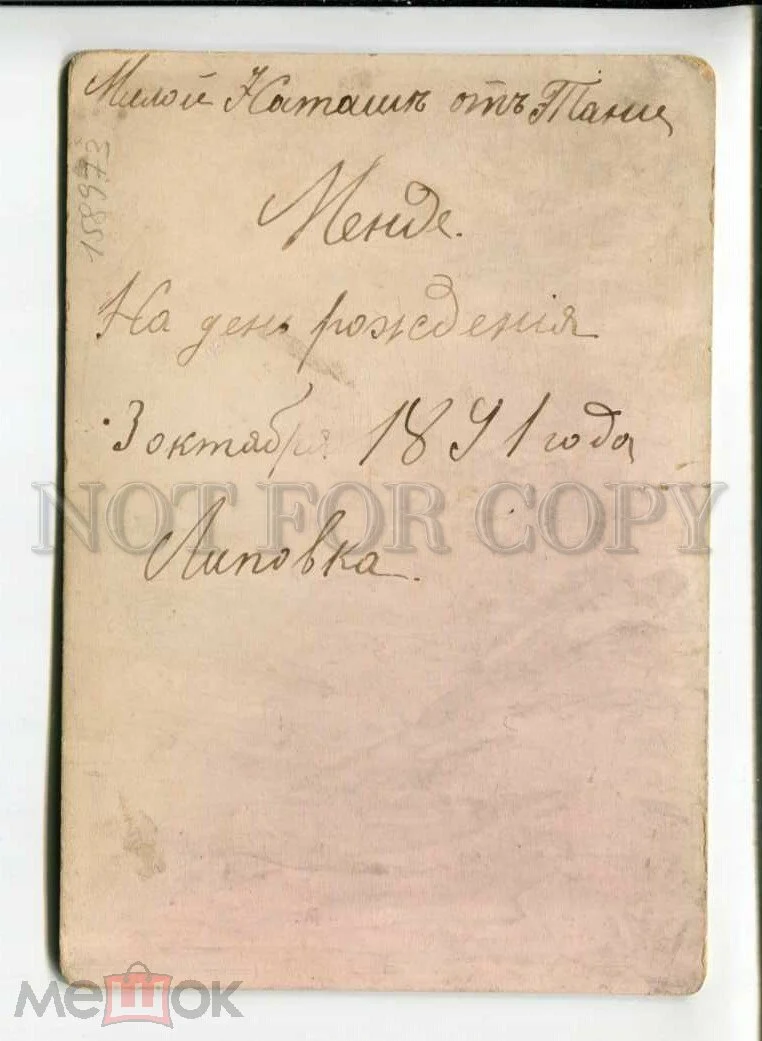 Милой Наташѣ отъ Тани
158973
Менде.
На день рожденія
3 октября 1891 года
NOT FOR COPY
Липовка.
МЕШОК